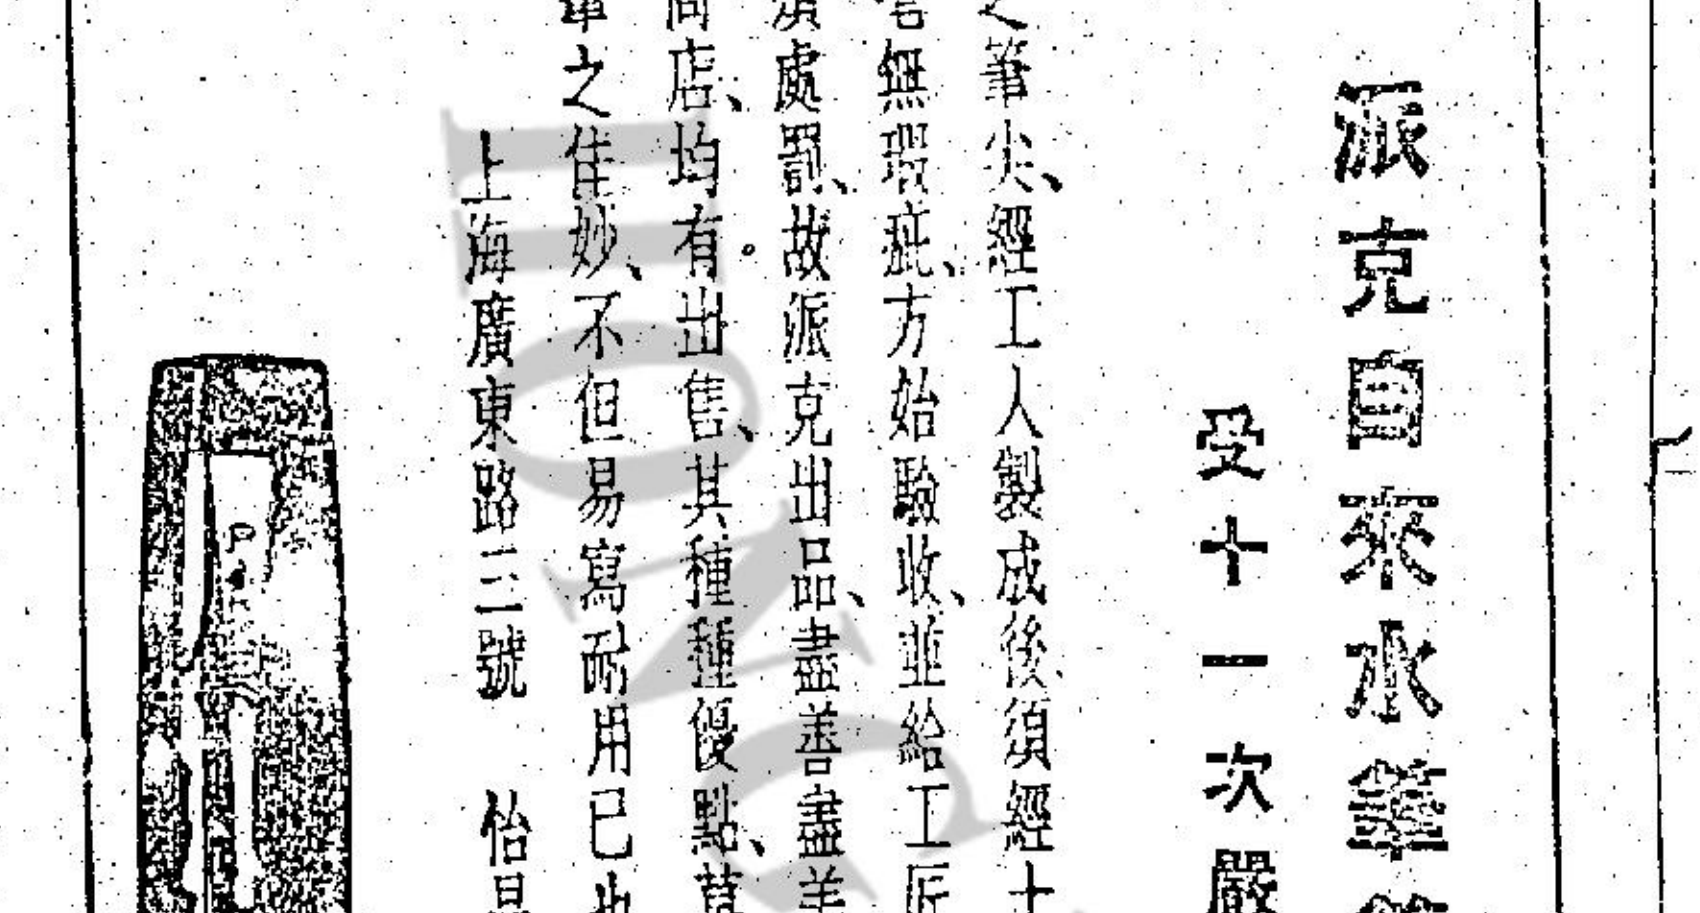 派克自來水筆
受十一次嚴
之筆尖、經工人製成後須經十
毫無瑕疵、方始驗收、並給工匠
須處罰、故派克出品、盡善盡美
商店、均有。出售、其種種優點、莫
筆之佳妙、不但易寫耐用已也
上海廣東路三號 怡昌